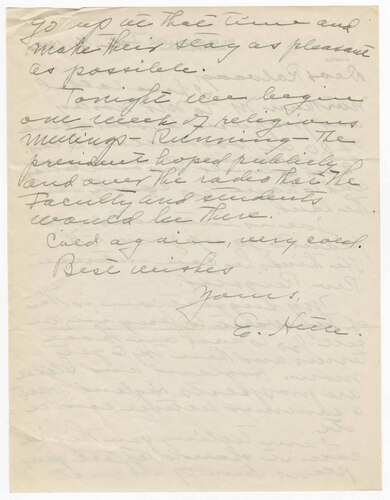 go up at that time and
make their stay as pleasant
as possible.
Tonight we begin
one week of religious
meetings - Running - the
president hoped publicly
and over the radio that the
Faculty and students
would be there.
Cold again, very cold.
Best wishes
Yours,
E.